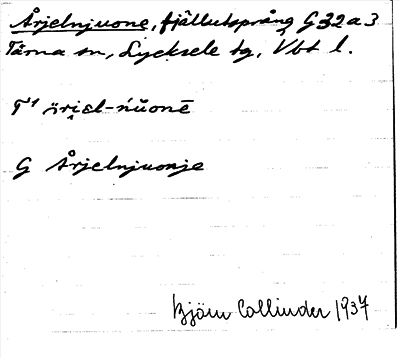 Årjelnjuone, fjällutsprång G32a3
Tärna sn, Lycksele tg, Vbt l.
T¹ ärjel-ńŭonē
G Årjelnjuonje
Björn Collinder 1937